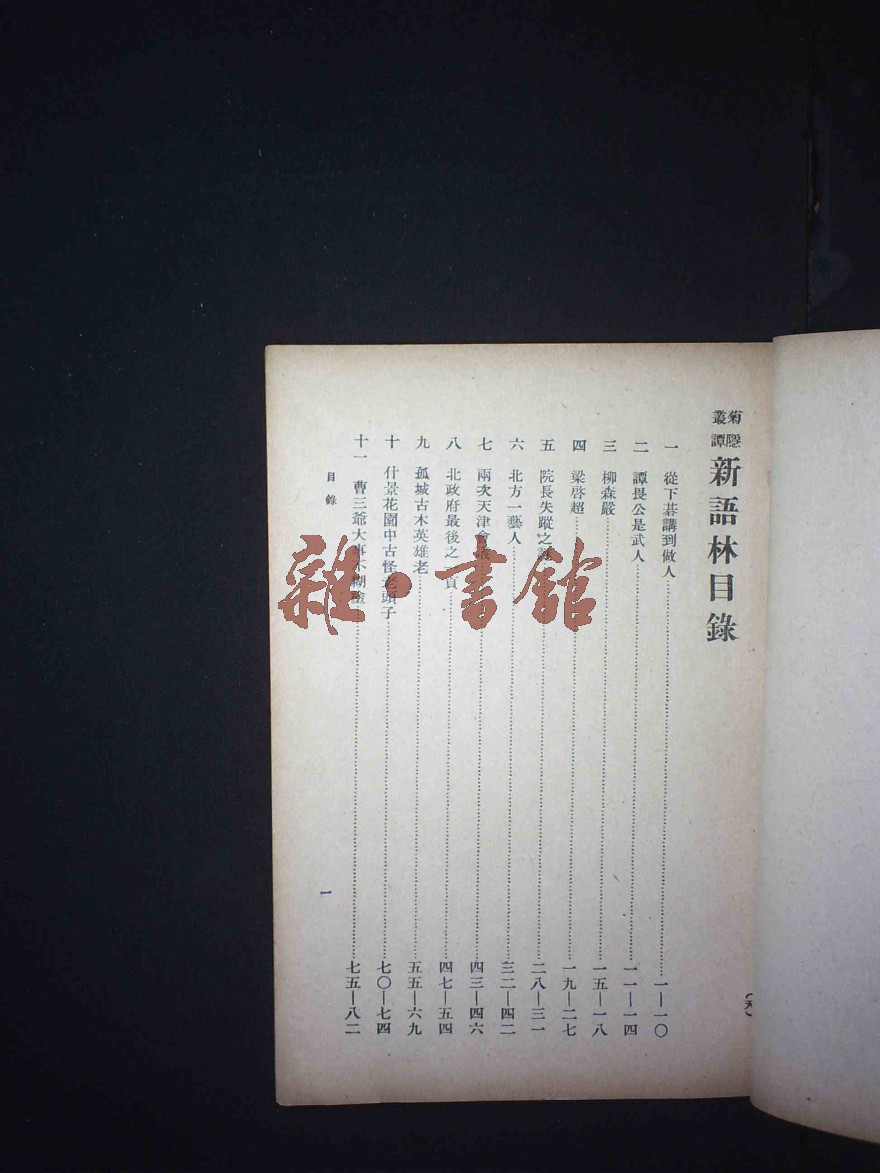 菊隱叢譚 新語林目錄
一 從下碁講到做人 一—一〇
二 譚畏公是武人 一一—一四
三 柳森嚴 一五—一八
四 梁啓超 一九—二七
五 院長失蹤之 二八—三一
六 北方一藝人 三二—四二
七 兩次天津會 四三—四六
八 北政府最後之一頁 四七—五四
九 孤城古木英雄老 五五—六九
十 什景花園中古怪老頭子 七〇—七四
十一 曹三爺大事不糊塗 七五—八二
目錄
一
雜·書館